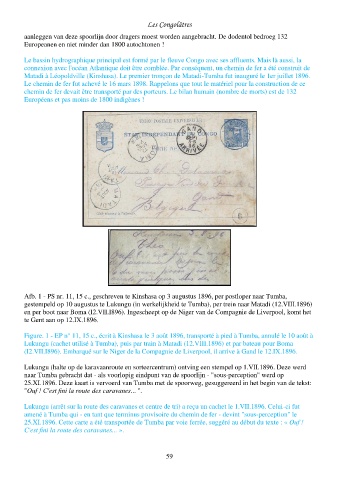 Les Congolâtres
aanleggen van deze spoorlijn door dragers moest worden aangebracht. De dodentol bedroeg 132
Europeanen en niet minder dan 1800 autochtonen !
Le bassin hydrographique principal est formé par le fleuve Congo avec ses affluents. Mais là aussi, la
connexion avec l'océan Atlantique doit être comblée. Par conséquent, un chemin de fer a été construit de
Matadi à Léopoldville (Kinshasa). Le premier tronçon de Matadi-Tumba fut inauguré le 1er juillet 1896.
Le chemin de fer fut achevé le 16 mars 1898. Rappelons que tout le matériel pour la construction de ce
chemin de fer devait être transporté par des porteurs. Le bilan humain (nombre de morts) est de 132
Européens et pas moins de 1800 indigènes !
ETAT INDEPENDANT DU CONGO
GAND
ARRIVÉE
Belgique
Afb. 1 - PS nr. 11, 15 c., geschreven te Kinshasa op 3 augustus 1896, per postloper naar Tumba,
gestempeld op 10 augustus te Lukungu (in werkelijkheid te Tumba), per trein naar Matadi (12.VIII.1896)
en per boot naar Boma (I2.VII.I896). Ingescheept op de Niger van de Compagnie de Liverpool, komt het
te Gent aan op 12.IX.1896.
Figure. 1 - EP n° 11, 15 c., écrit à Kinshasa le 3 août 1896, transporté à pied à Tumba, annulé le 10 août à
Lukungu (cachet utilisé à Tumba), puis par train à Matadi (12.VIII.1896) et par bateau pour Boma
(I2.VII.I896). Embarqué sur le Niger de la Compagnie de Liverpool, il arrive à Gand le 12.IX.1896.
Lukungu (halte op de karavaanroute en sorteercentrum) ontving een stempel op 1.VII.1896. Deze werd
naar Tumba gebracht dat - als voorlopig eindpunt van de spoorlijn - "sous-perception" werd op
25.XI.1896. Deze kaart is vervoerd van Tumba met de spoorweg, gesuggereerd in het begin van de tekst:
"Ouf ! C'est fini la route des caravanes... ".
Lukungu (arrêt sur la route des caravanes et centre de tri) a reçu un cachet le 1.VII.1896. Celui-ci fut
amené à Tumba qui - en tant que terminus provisoire du chemin de fer - devint "sous-perception" le
25.XI.1896. Cette carte a été transportée de Tumba par voie ferrée, suggéré au début du texte : « Ouf !
C'est fini la route des caravanes... »
59